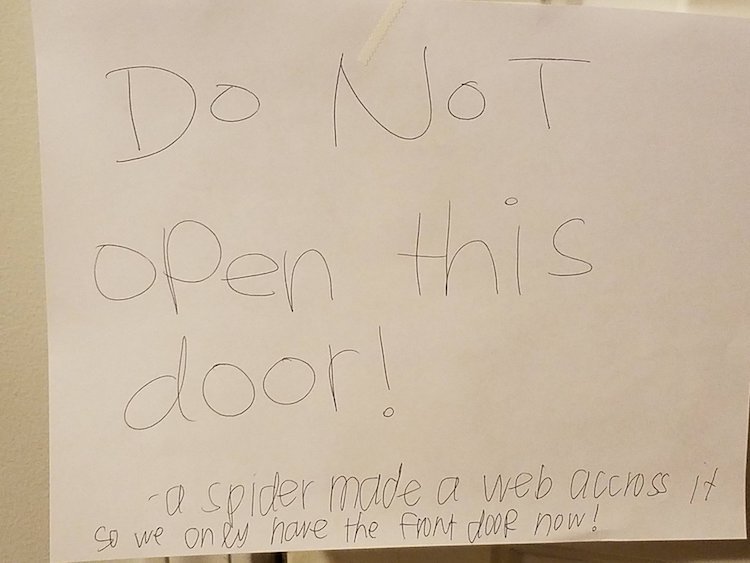 Do NoT
open this
door!
-a spider made a web accross it
so we only have the front dooR now!